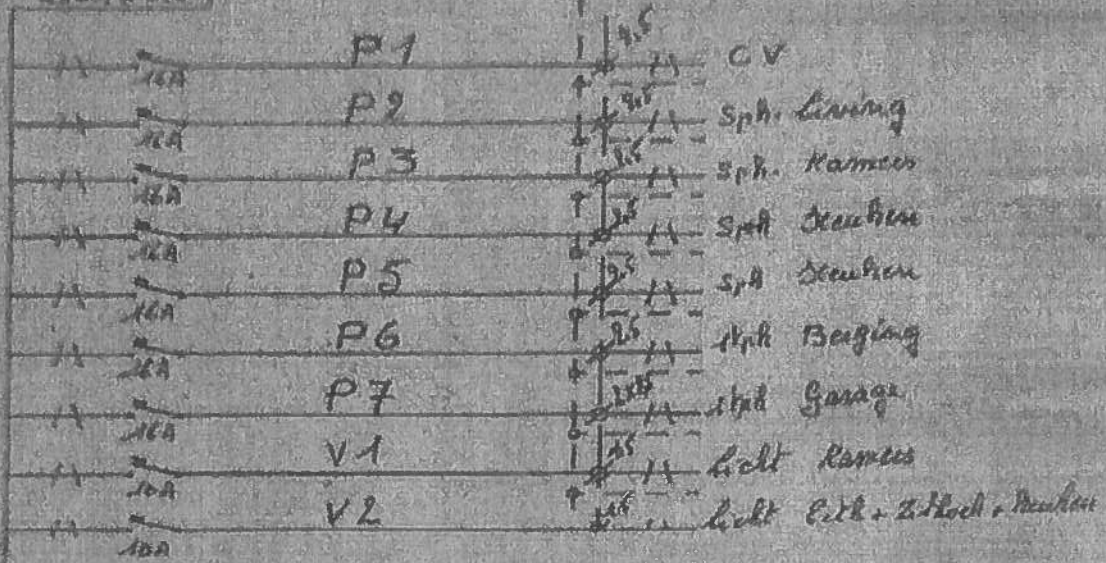 P1 2,5 CV
16A
P2 2,5 Sph. Living
16A
P3 2,5 Sph. Kamers
16A
P4 2,5 Sph Keuken
16A
P5 2,5 Sph Keuken
16A
P6 2,5 Berging
16A
P7 Garage
16A
V1 1,5 Licht Kamers
10A
V2 1,5 Licht Eetk + Zithoek + Keuken
10A